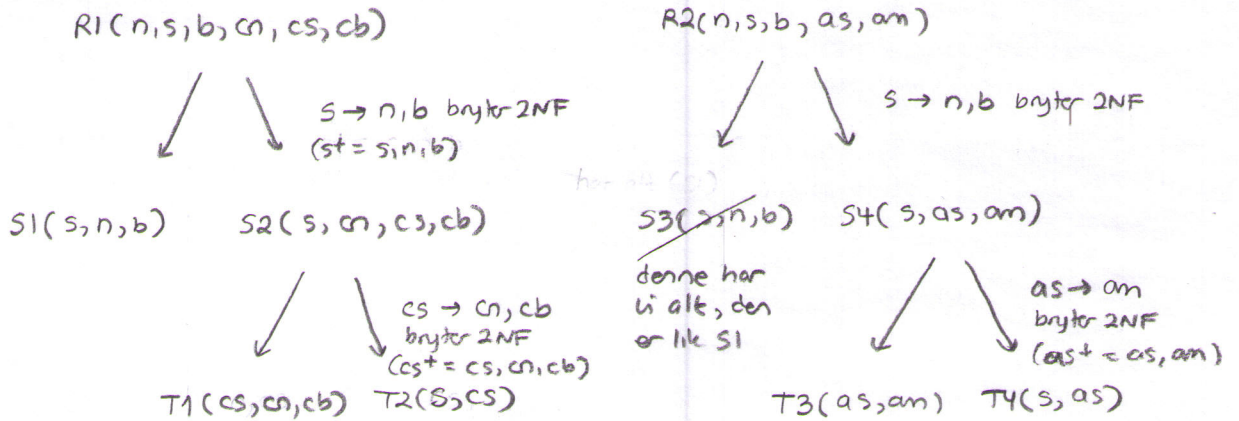 R1(n,s,b,cn,cs,cb)
s → n,b bryter 2NF
(s+ = s,n,b)
S1(s,n,b) S2(s,cn,cs,cb)
cs → cn,cb
bryter 2NF
(cs+ = cs,cn,cb)
T1(cs,cn,cb) T2(s,cs)
R2(n,s,b,as,an)
s → n,b bryter 2NF
S3(s,n,b) S4(s,as,an)
denne har
vi alt, den
er lik S1
as → an
bryter 2NF
(as+ = as,an)
T3(as,an) T4(s,as)